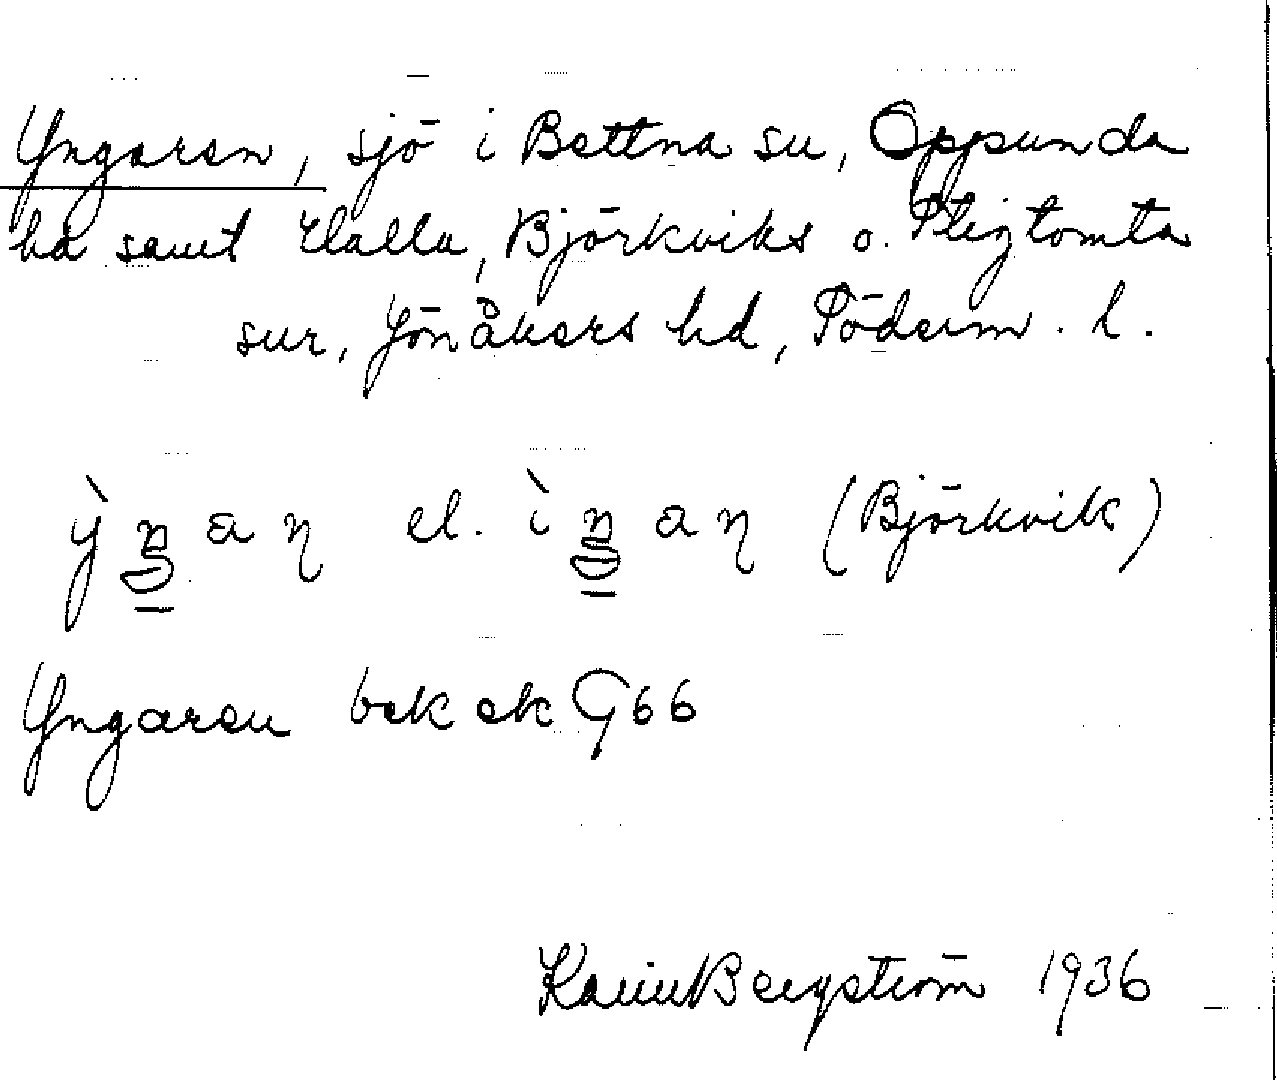 Yngaren, sjö i Bettna sn, Oppunda
hd samt Halla, Björkviks o. Stigtomta
snr, Jönåkers hd, Söderm. l.
ỳŋaṇ el. ìŋaṇ (Björkvik)
Yngaren bek ek G66
Karin Bergström 1936